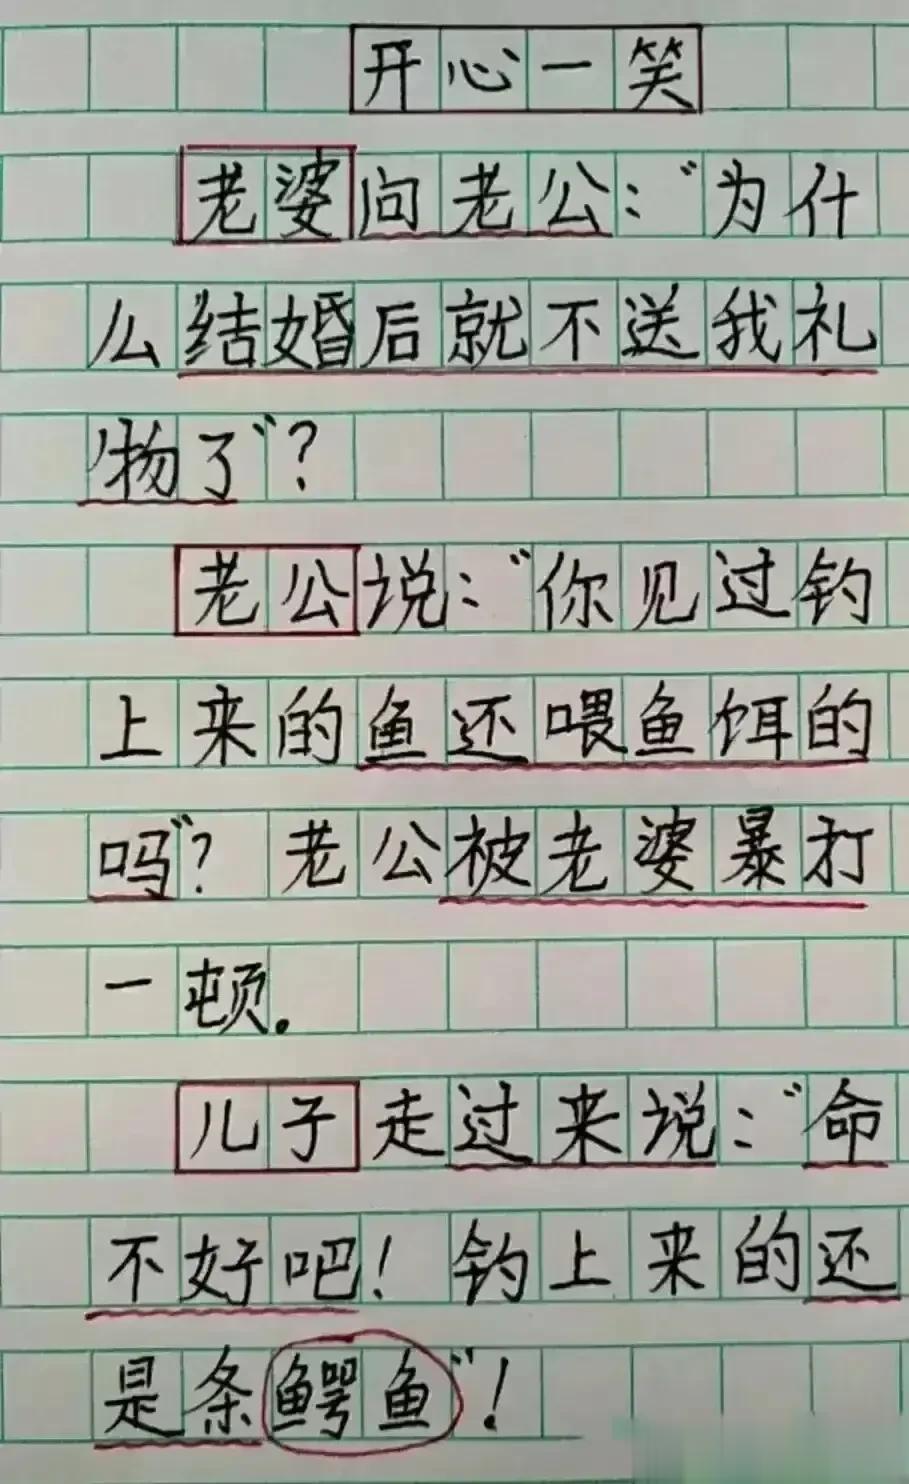 开心一笑
老婆问老公:“为什
么结婚后就不送我礼
物了”?
老公说:“你见过钓
上来的鱼还喂鱼饵的
吗”?老公被老婆暴打
一顿.
儿子走过来说:“命
不好吧!钓上来的还
是条鳄鱼”!